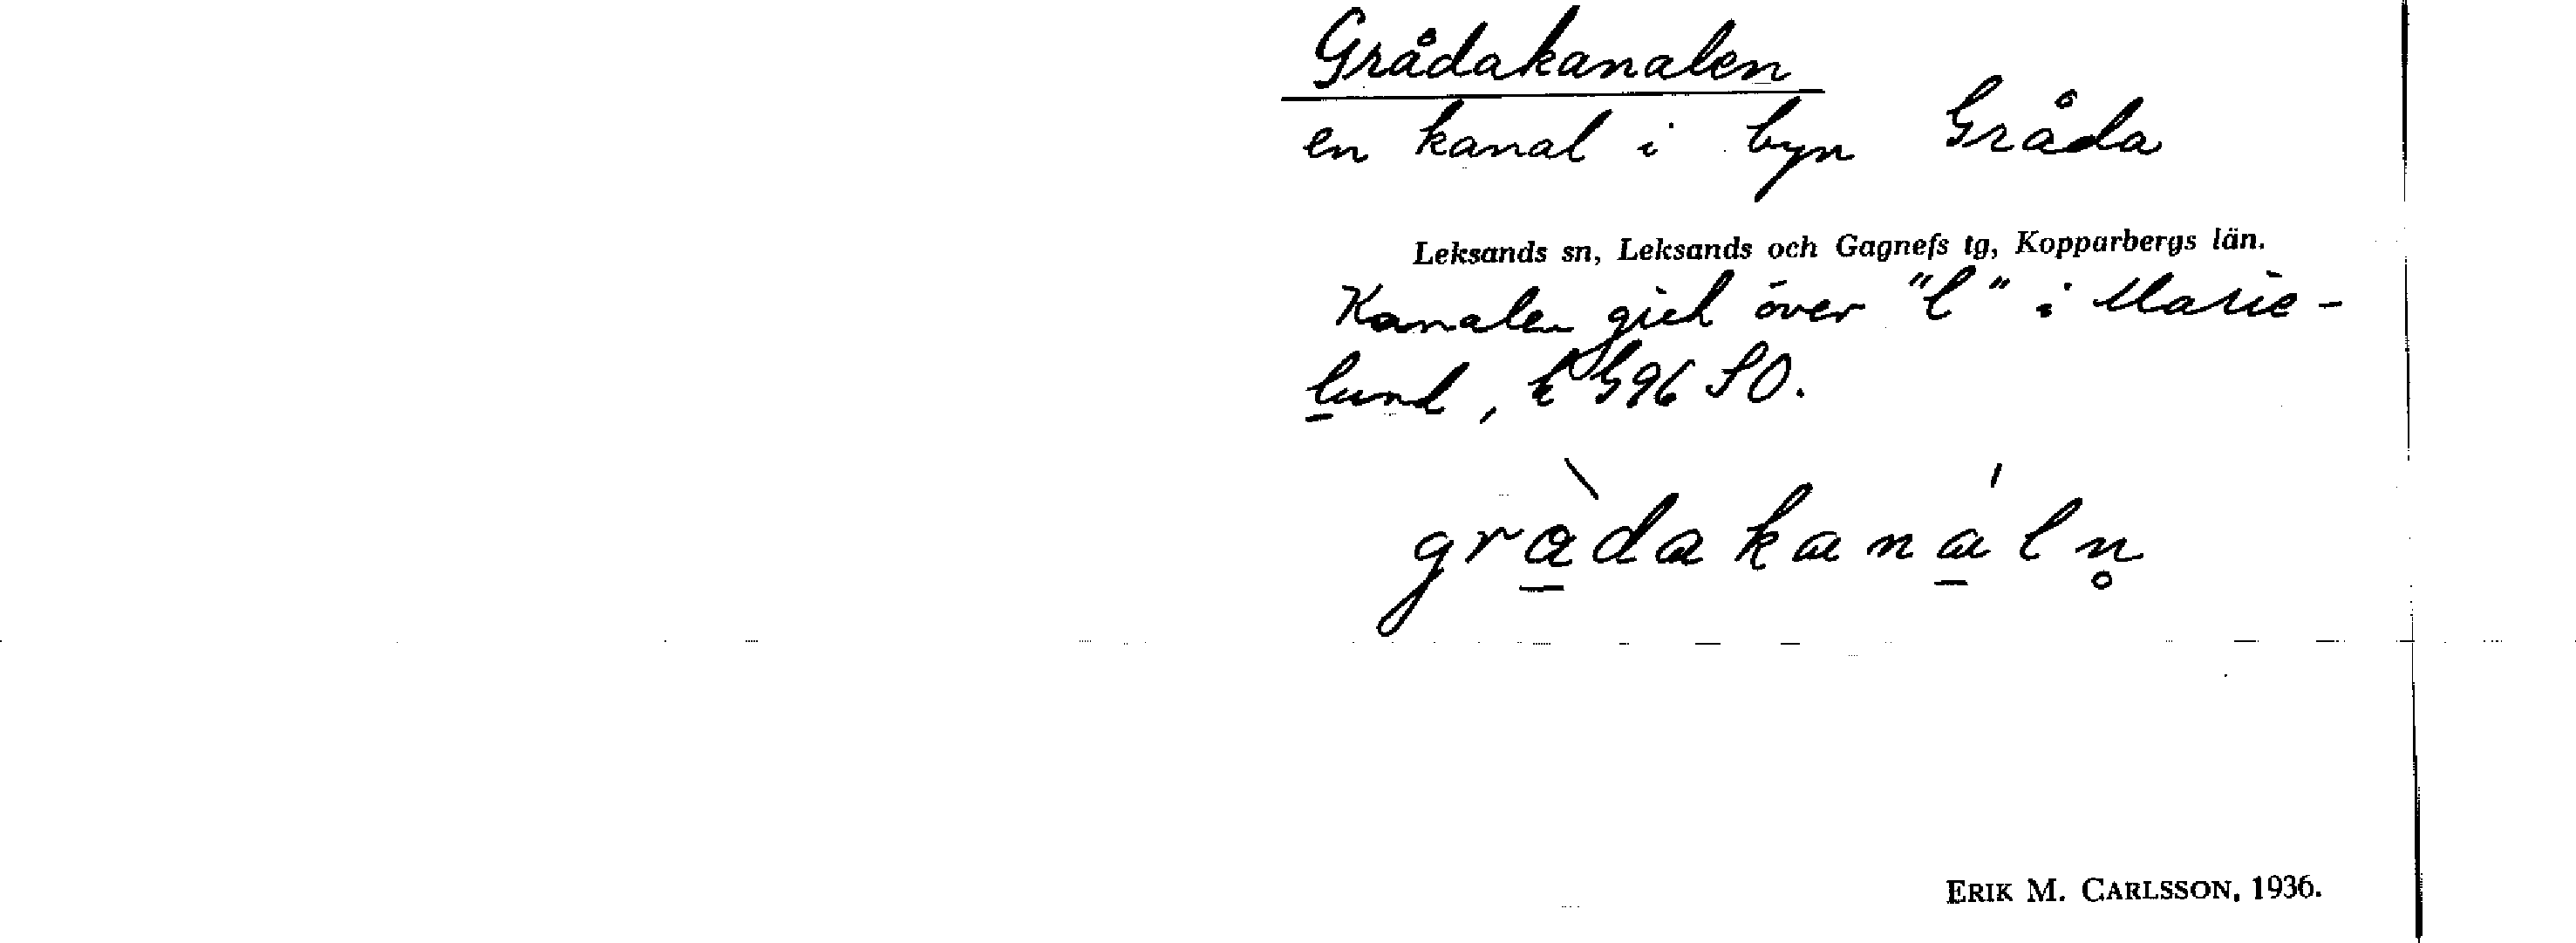 Grådakanalen
en kanal i byn Gråda
Leksands sn, Leksands och Gagnefs tg, Kopparbergs län.
Kanalen gick över "l" i Marie-
lund, k G96 SO.
gràdakanáln̥
ERIK M. CARLSSON, 1936.